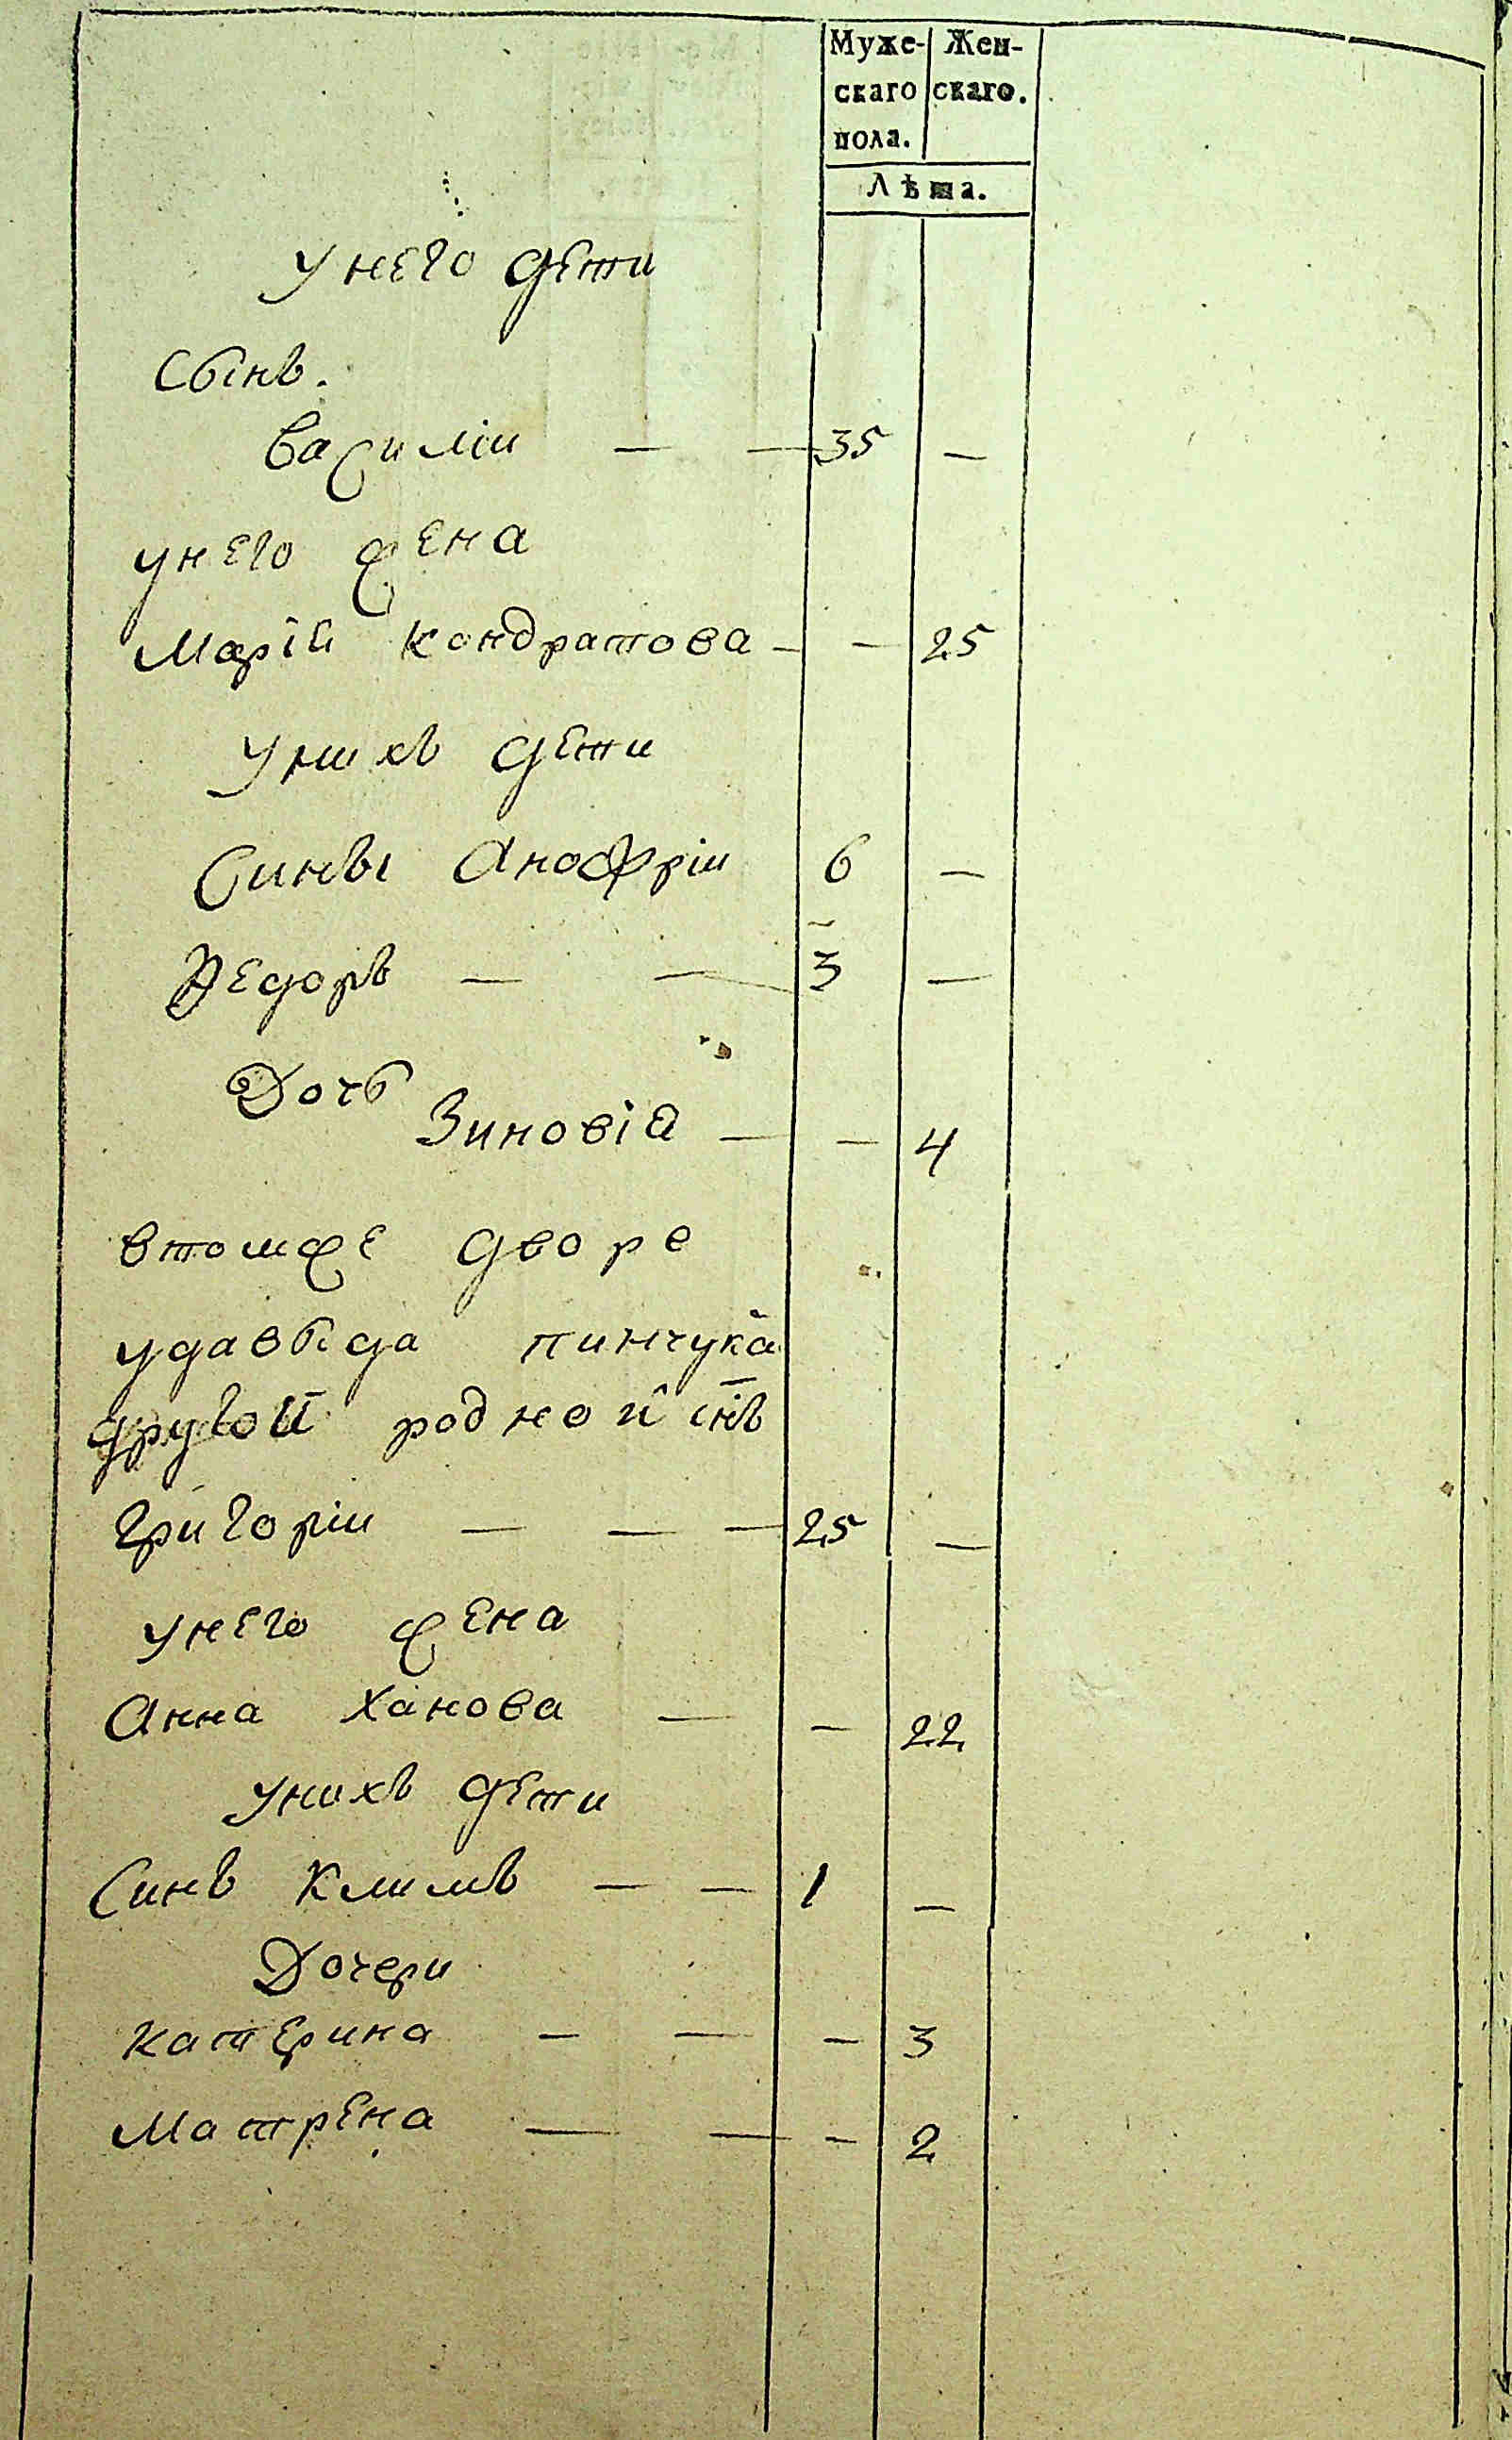 Муже- Жен-
скаго скаго.
пола.
Лѣта.
унего дети
Сынъ.
Василіи — — 35 —
унего жена
Маріи Кондратова — — 25
унихъ дети
Синъı Анофріи 6 —
Ѳедоръ — — 3 —
Дочь
Зиновіа — — 4
втомже дворе
удавыда пинчука
другой родной снъ
Григоріи — — — 25 —
унего жена
Анна Ханова — — 22
унихъ дети
Синъ Климъ — — 1 —
Дочери
Катерина — — — 3
Матрена — — — 2